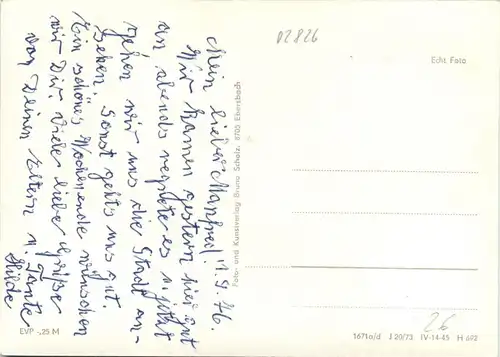 Mein lieber Manfred! 17.9.76.
Wir kamen gestern hier gut
an abends regnete es u. jetzt
gehen wir uns die Stadt an-
sehen. Sonst gehts uns gut.
Ein schönes Wochenende wünschen
wir Dir. Viele liebe Grüsse
von Deinen Eltern u. Tante
Hilde
02826
Echt Foto
Foto- und Kunstverlag Bruno Scholz, 8705 Ebersbach
EVP -,25 M
1671a/d J 20/73 IV-14-45 H 692
26